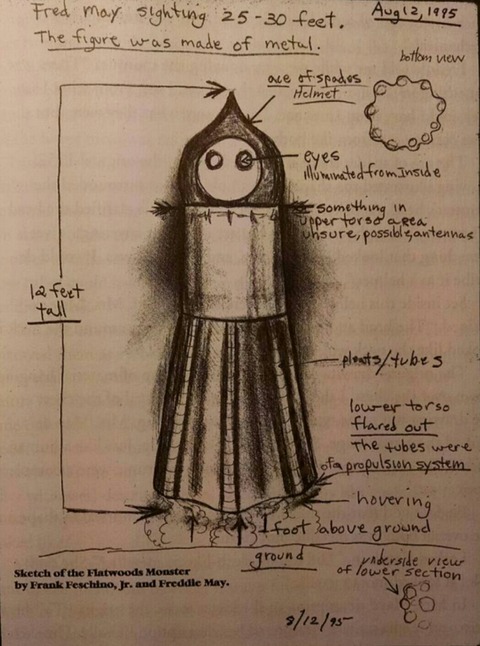 Fred May sighting 25-30 feet.
Aug 12, 1995
The figure was made of metal.
bottom view
ace of spades
Helmet
eyes
illuminated from Inside
something in
upper torso area
unsure, possible, antennas
12 feet
tall
pleats/tubes
lower torso
flared out
The tubes were
of a propulsion system
hovering
1 foot above ground
ground
underside view
of lower section
Sketch of the Flatwoods Monster
by Frank Feschino, Jr. and Freddie May.
8/12/95